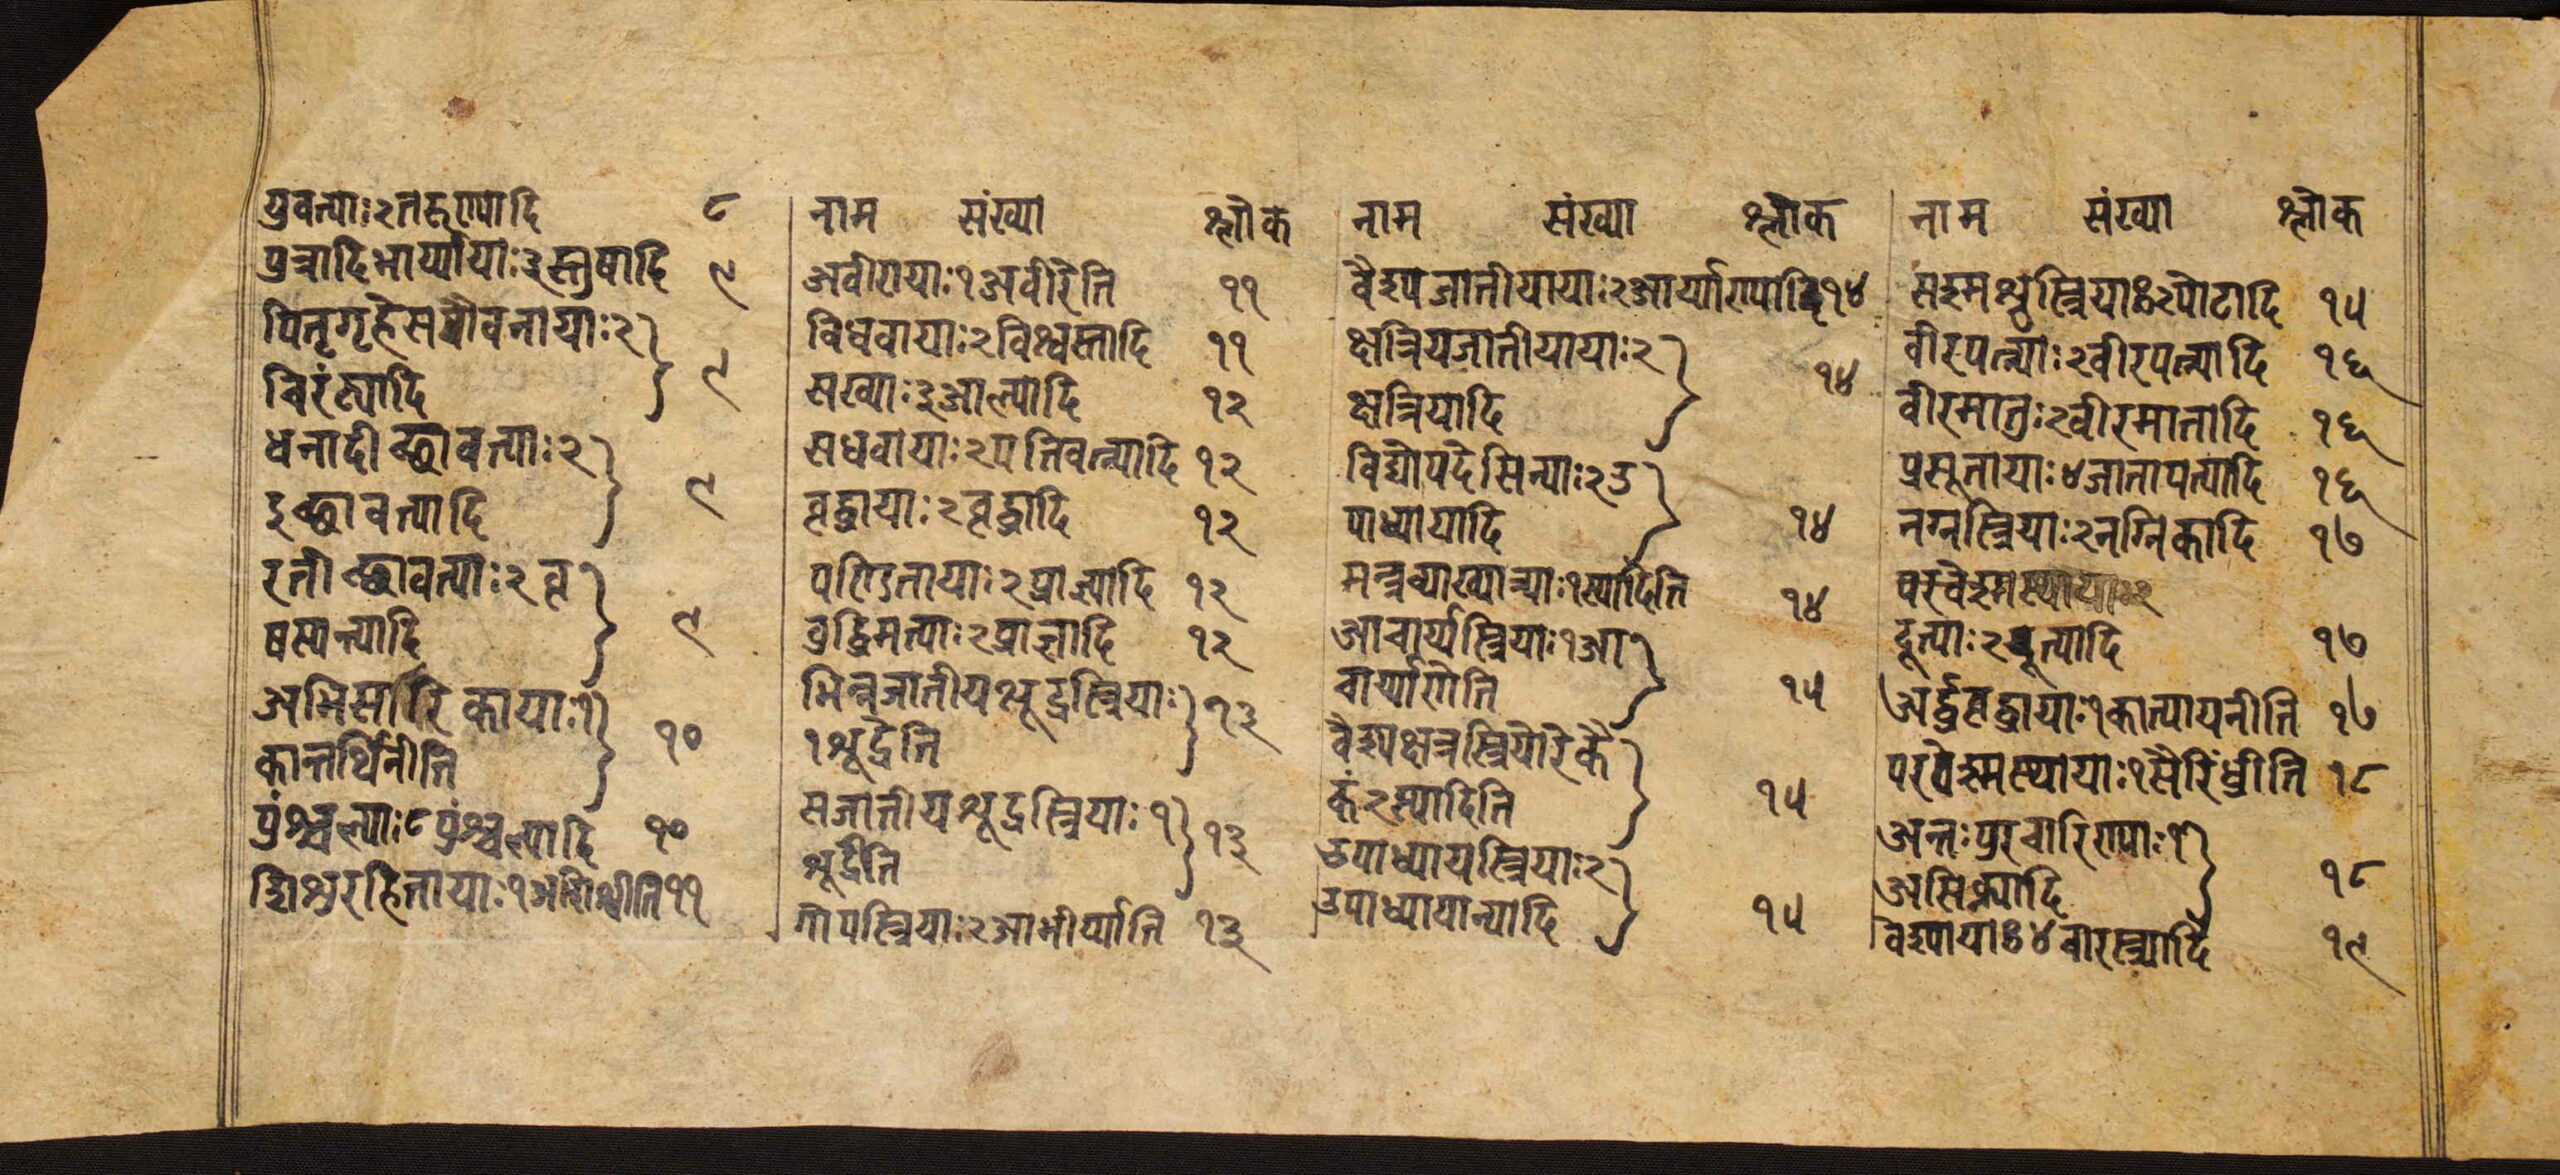 युवत्याः२तरुण्यादि ८
पुत्रादिभार्य्यायाः३स्नुषादि ९
पितृगृहेसयौवनायाः२
चिरंट्यादि ९
धनादीच्छावत्याः२
इच्छावत्यादि ९
रतीच्छावत्याः२वृ
षस्यन्त्यादि ९
अभिसारिकायाः१
कान्तार्थिनीति १०
पुंश्चल्याः८पुंश्चल्यादि १०
शिशुरहितायाः१अशिश्वीति११
नाम संख्या श्लोक
अवीरायाः१अवीरेति ११
विधवायाः२विश्वस्तादि ११
सख्याः३आल्यादि १२
सधवायाः२पतिवत्न्यादि १२
वृद्धायाः२वृद्धादि १२
पण्डितायाः२प्राज्ञ्यादि १२
बुद्धिमत्याः२प्राज्ञादि १२
भिन्नजातीयशूद्रस्त्रियाः
१शूद्रेति १३
सजातीयशूद्रस्त्रियाः१
शूद्रेति १३
गोपस्त्रियाः२आभीर्य्याति १३
नाम संख्या श्लोक
वैश्यजातीयायाः२आर्य्याण्यादि१४
क्षत्रियजातीयायाः२
क्षत्रियादि १४
विद्योपदेसिन्याः२उ
पाध्यायादि १४
मन्त्रव्याख्यात्र्याः१स्यादिति १४
आचार्य्यस्त्रियाः१आ
चार्य्याणीति १५
वैश्यक्षत्रस्त्रियोरेकै
कं२स्यादिति १५
उपाध्यायस्त्रियाः२
उपाध्यायान्यादि १५
नाम संख्या श्लोक
सश्मश्रुस्त्रियाः२पोटादि १५
वीरपत्न्याः२वीरपत्न्यादि १६
वीरमातुः२वीरमातादि १६
प्रसूतायाः४जातापत्यादि १६
नग्नस्त्रियाः२नग्निकादि १७
परवेश्मस्थायाः२
दूत्याः२दूत्यादि १७
अर्द्धवृद्धायाः१कात्यायनीति १७
परवेश्मस्थायाः१सैरिंध्रीति १८
अन्तःपुरचारिण्याः१
असिक्न्यादि १८
वेश्यायाः४वारस्त्र्यादि १९